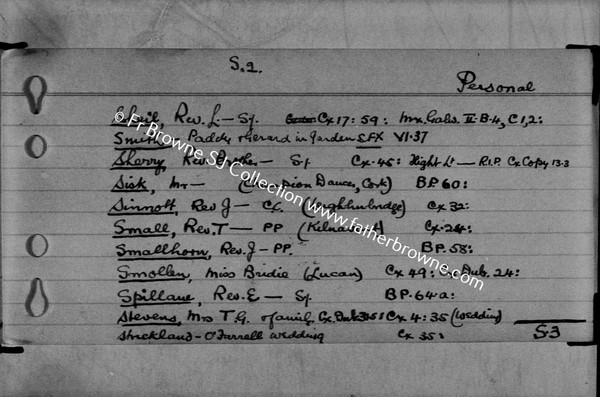 S.2.
Personal
Sheil, Rev. L. — Sj. Cx 17: 59: Mx. Gals. II-B-4, C1, 2:
Smith Paddy & Gerard in garden SFX VI-37
Sherry, Rev. Brother — Sj. Cx. 45: Flight Lt — R.I.P. Cx Copy 13-3
Sisk, Mr — (Champion Dancer, Cork) B.P. 60:
Sinnott, Rev J — C.C. (Leighlinbridge) Cx 32:
Small, Rev. T — PP Cx. 24:
Smallhorn, Rev. J — PP. B.P. 58:
Smollen, Miss Bridie (Lucan) Cx 49: Dub. 24:
Spillane, Rev. E — Sj B.P. 64a:
Stevens, Mrs T.G. & family Cx. Dub 35: Cx 4: 35 (Wedding)
Strickland - O'Farrell wedding Cx 35:
S3
© Fr Browne SJ Collection www.fatherbrowne.com